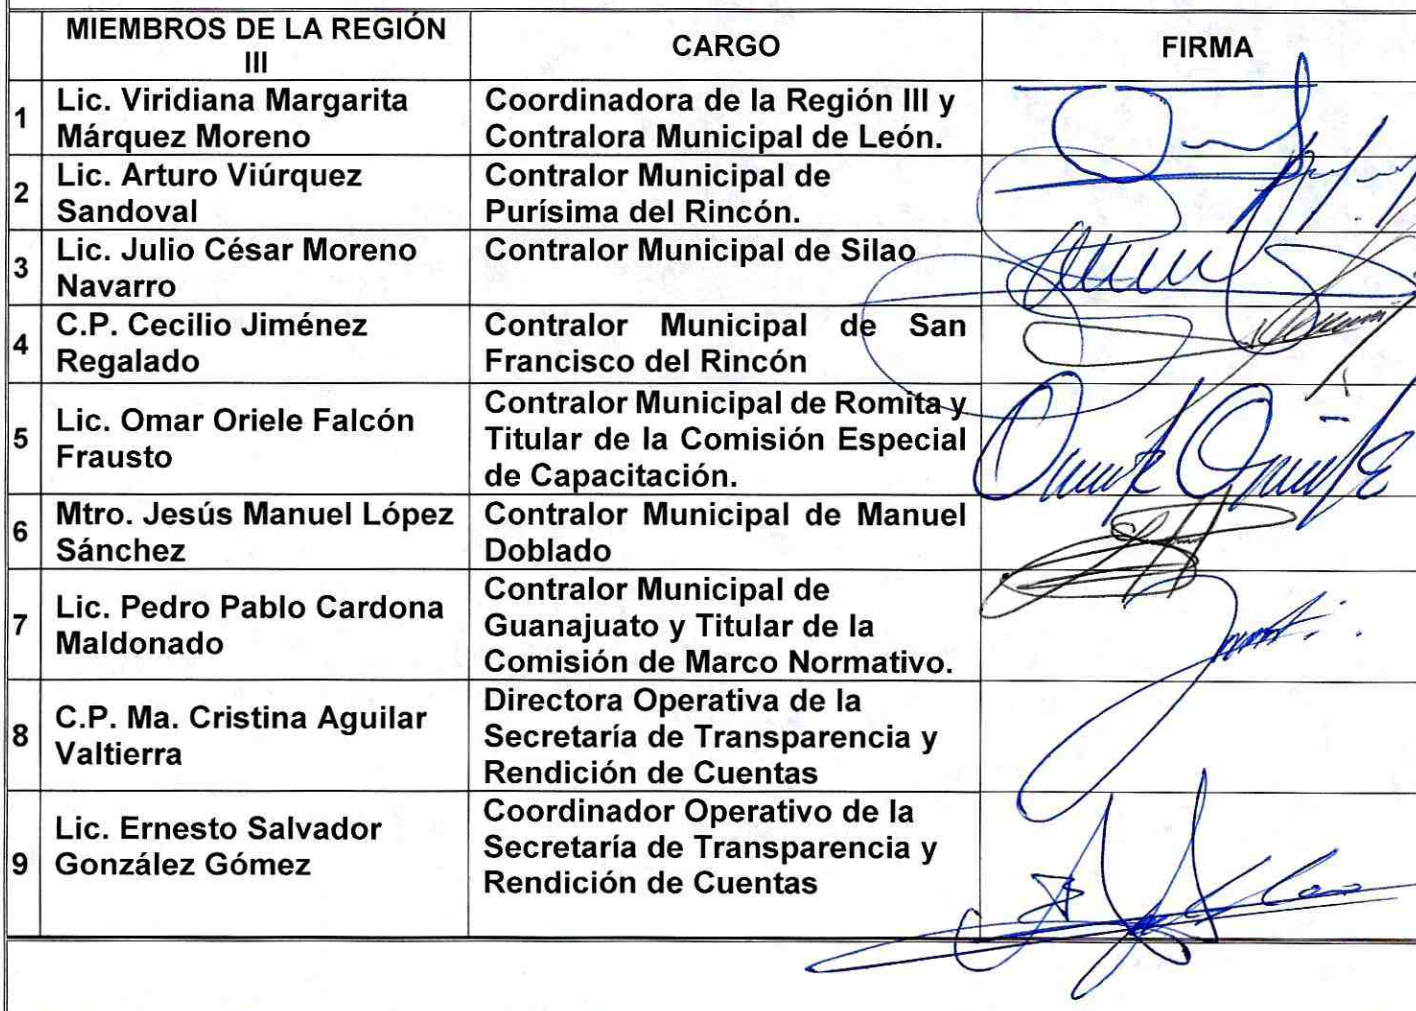 MIEMBROS DE LA REGIÓN
III
CARGO
FIRMA
1
Lic. Viridiana Margarita
Márquez Moreno
Coordinadora de la Región III y
Contralora Municipal de León.
2
Lic. Arturo Viúrquez
Sandoval
Contralor Municipal de
Purísima del Rincón.
3
Lic. Julio César Moreno
Navarro
Contralor Municipal de Silao
4
C.P. Cecilio Jiménez
Regalado
Contralor Municipal de San
Francisco del Rincón
5
Lic. Omar Oriele Falcón
Frausto
Contralor Municipal de Romita y
Titular de la Comisión Especial
de Capacitación.
6
Mtro. Jesús Manuel López
Sánchez
Contralor Municipal de Manuel
Doblado
7
Lic. Pedro Pablo Cardona
Maldonado
Contralor Municipal de
Guanajuato y Titular de la
Comisión de Marco Normativo.
8
C.P. Ma. Cristina Aguilar
Valtierra
Directora Operativa de la
Secretaría de Transparencia y
Rendición de Cuentas
9
Lic. Ernesto Salvador
González Gómez
Coordinador Operativo de la
Secretaría de Transparencia y
Rendición de Cuentas